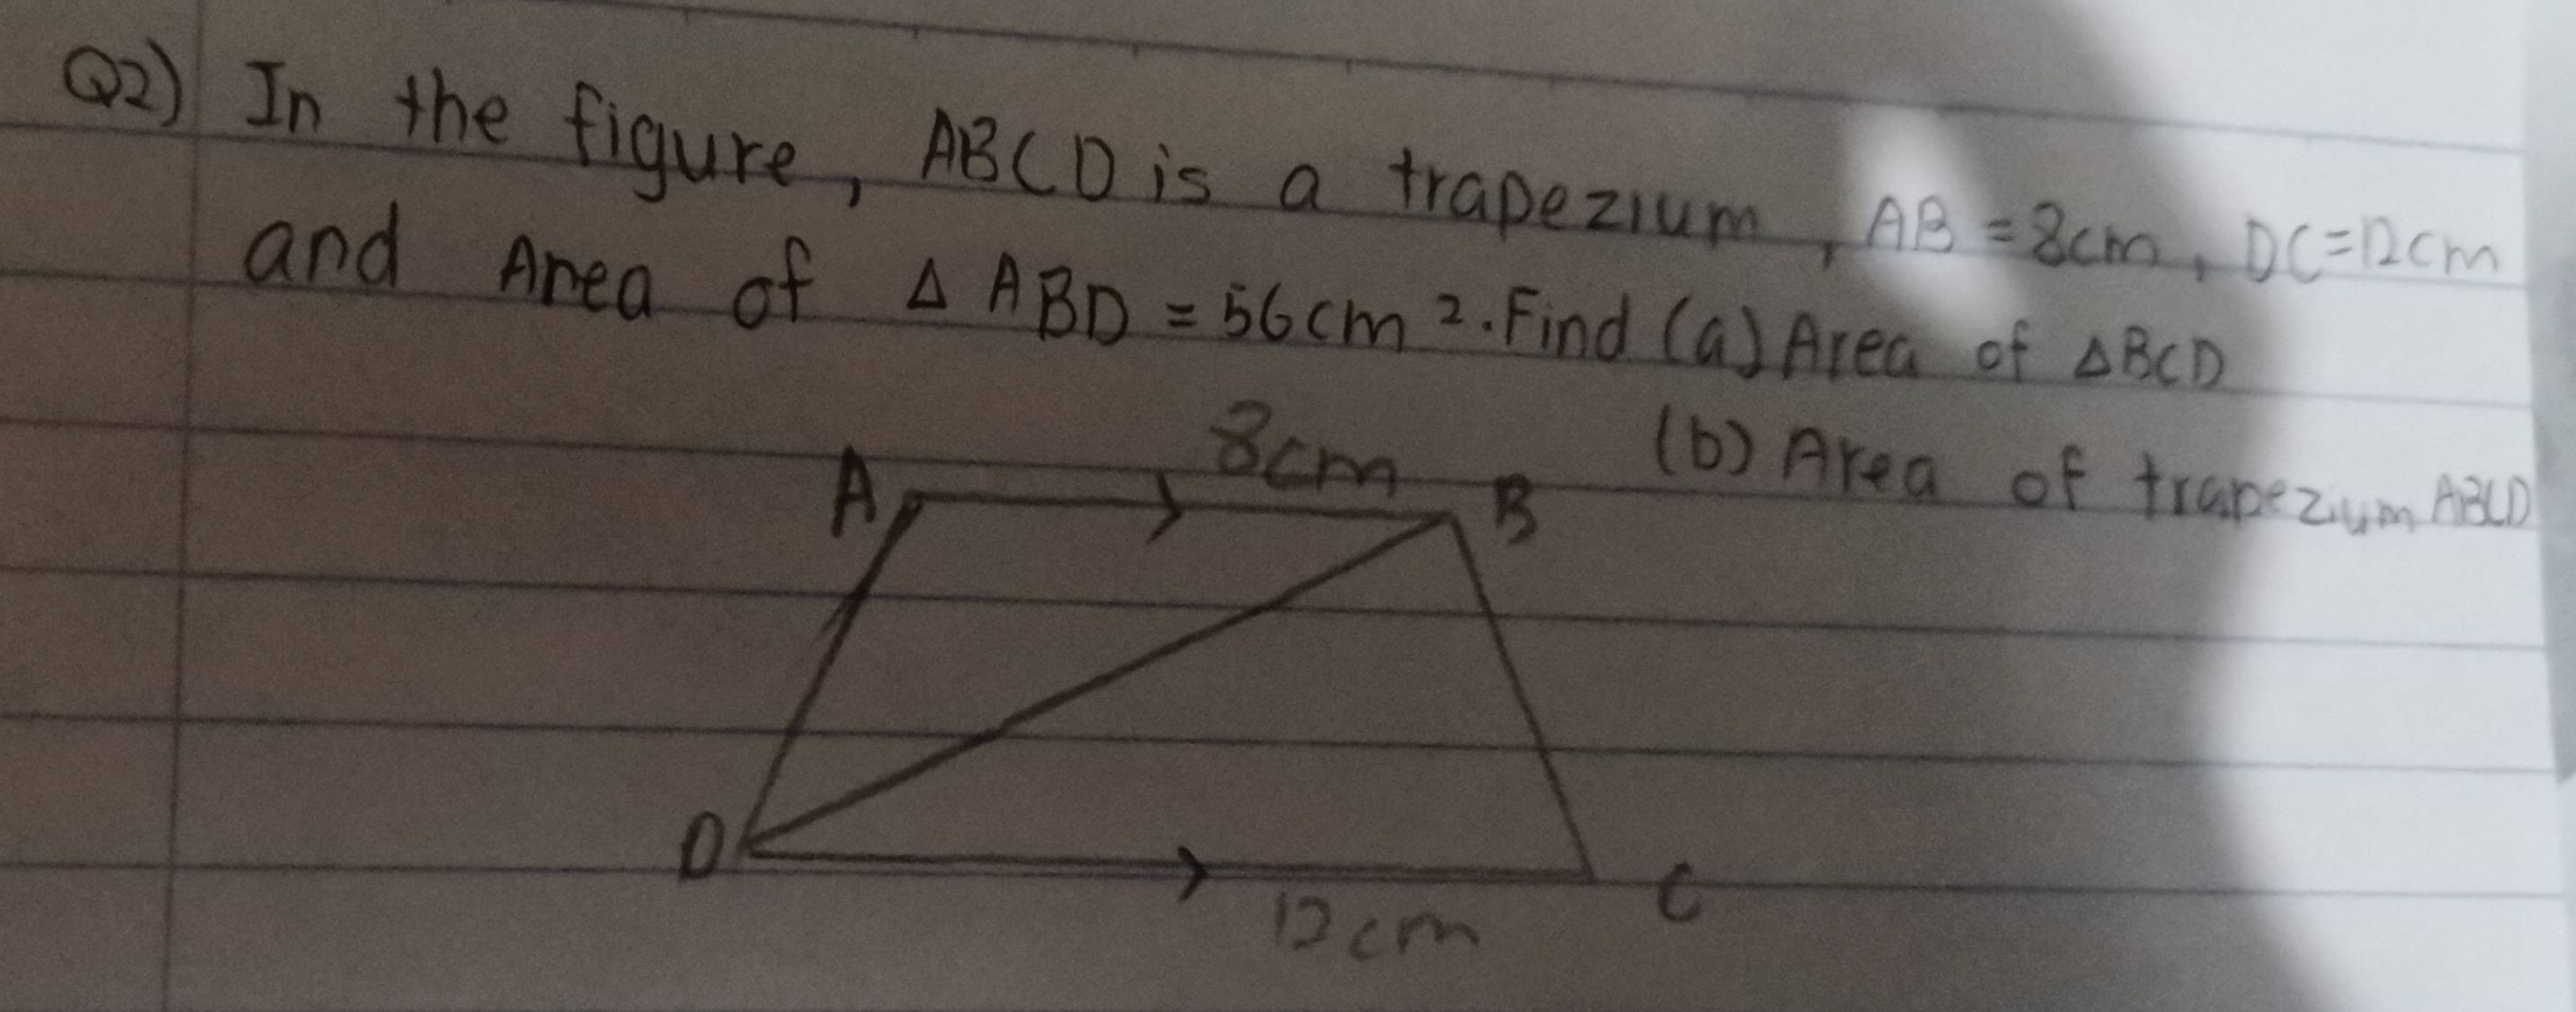 Q2) In the figure, ABCD is a trapezium, AB = 8cm, DC=12cm
and Area of Δ ABD = 56cm². Find (a) Area of ΔBCD
(b) Area of trapezium ABCD
8cm
A
B
D
C
12cm